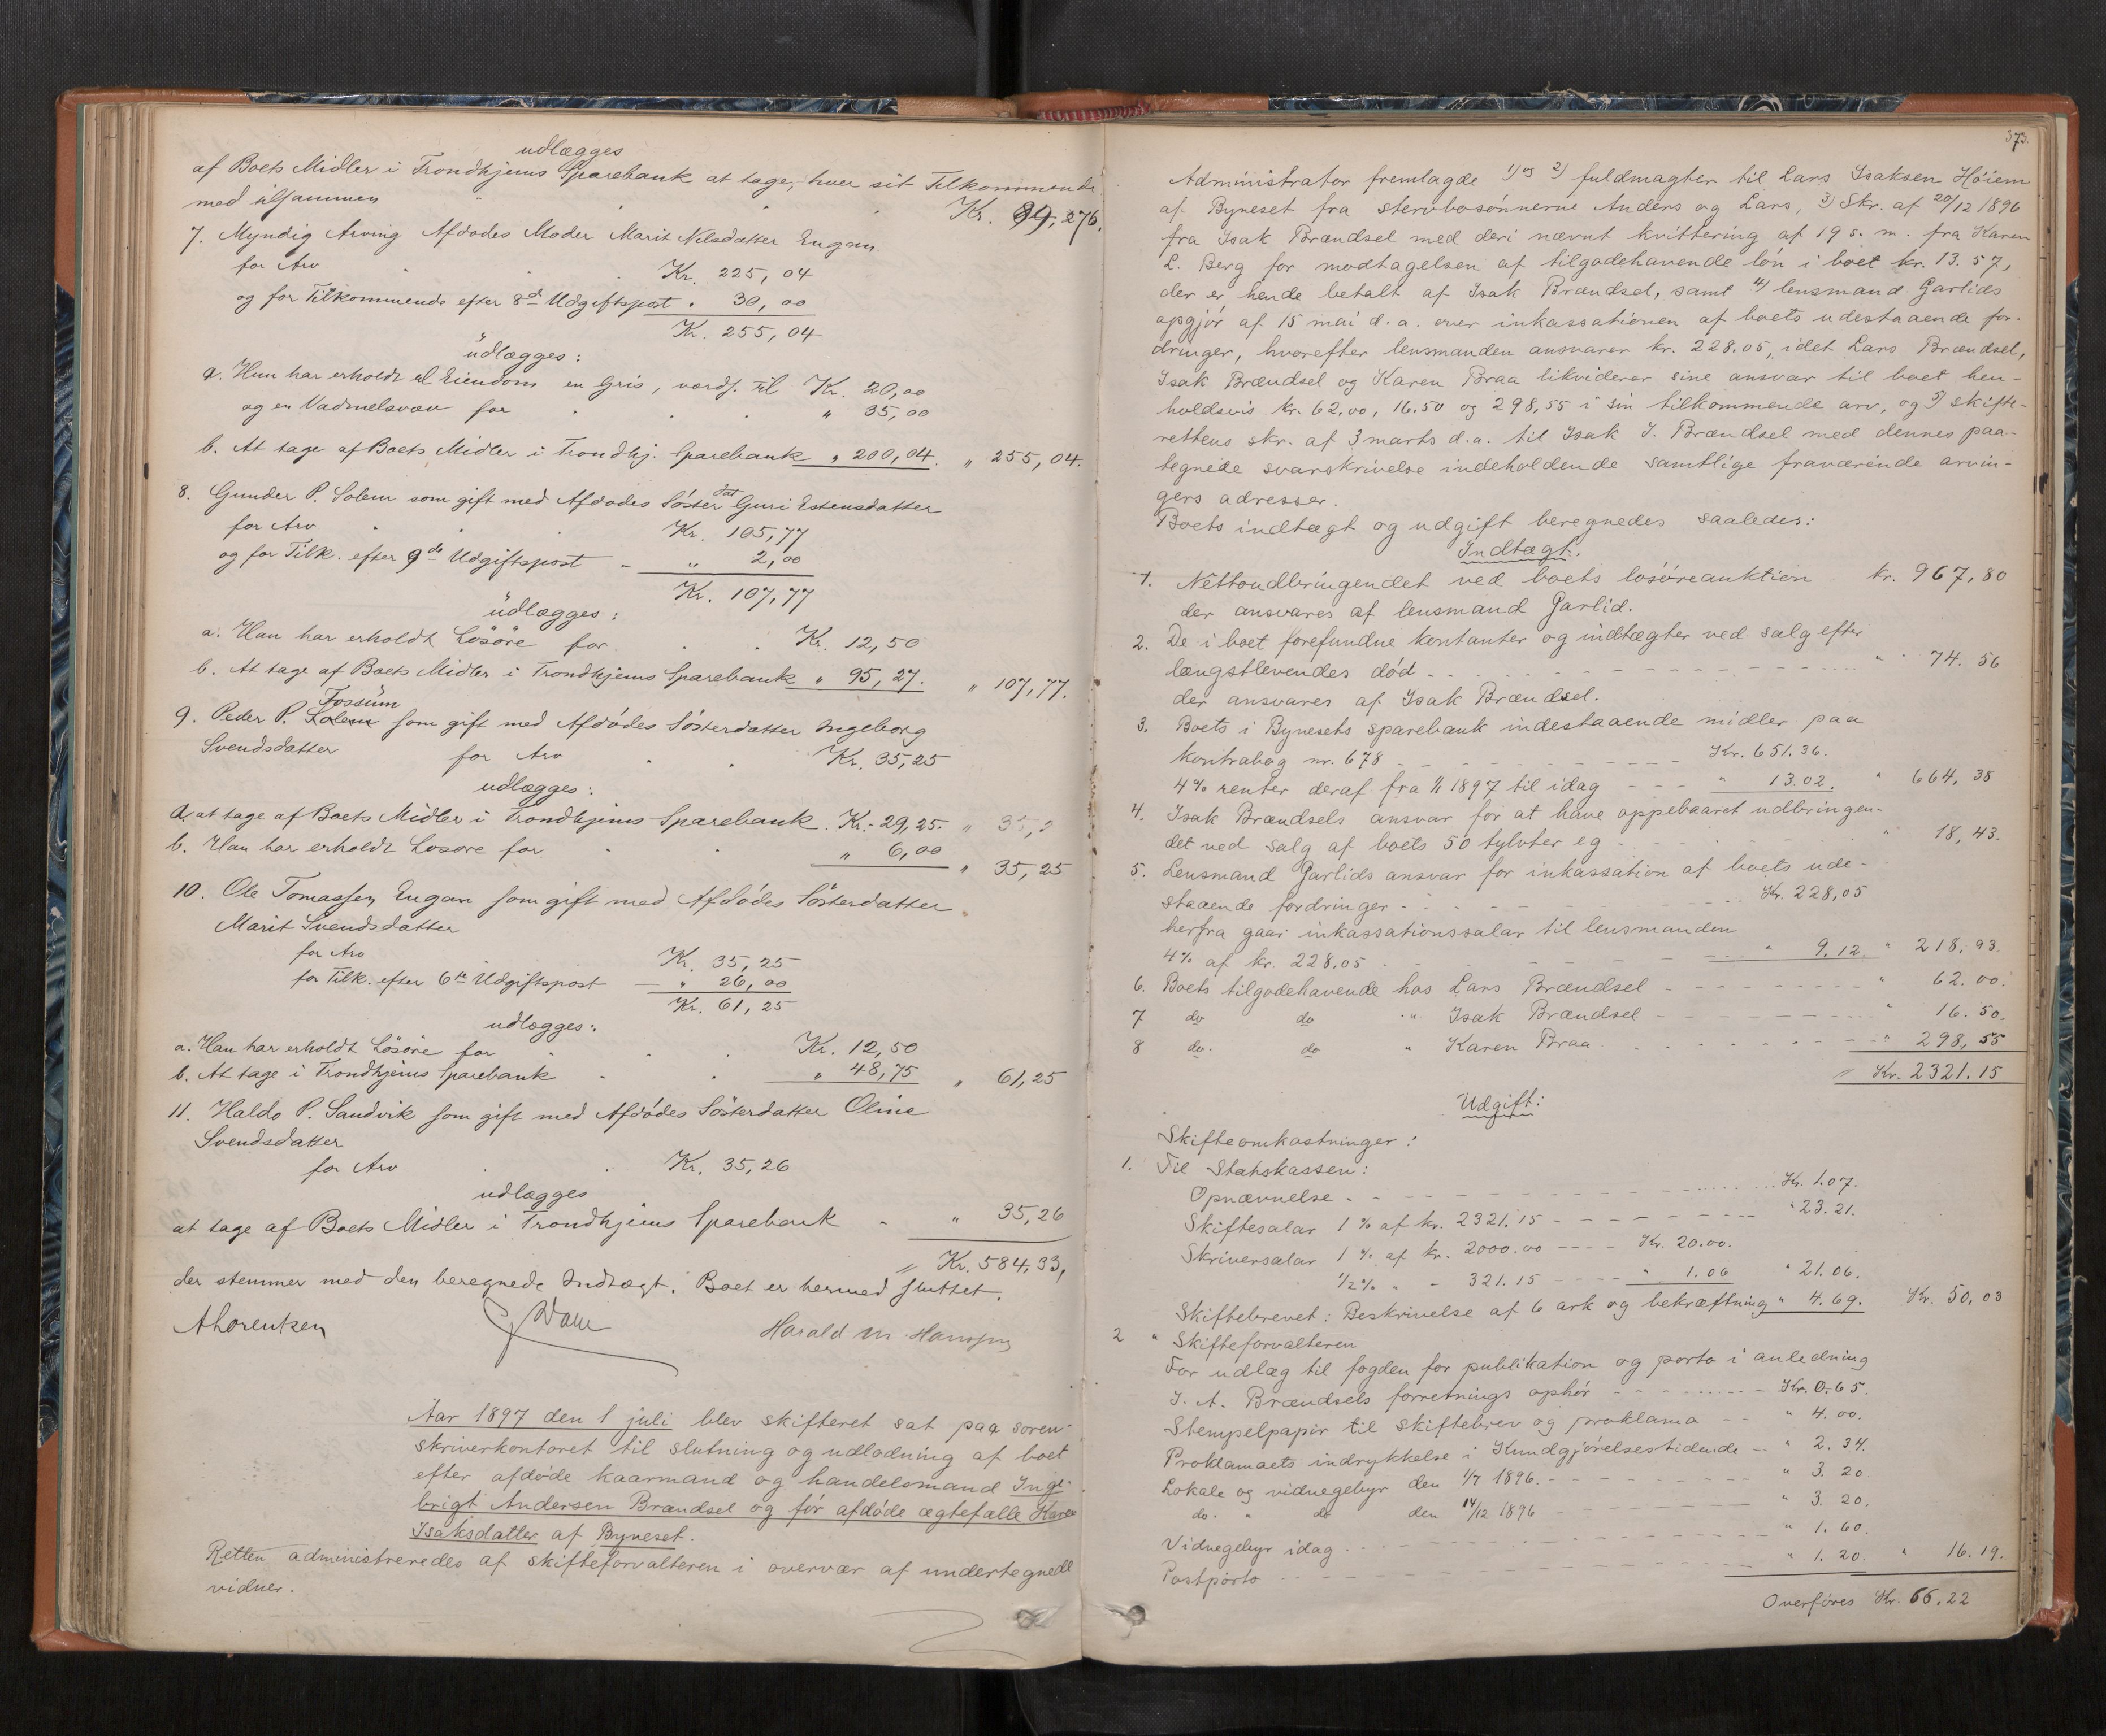 udlægges
af Boets Midler i Trondhjems Sparebank at tage, hver sit Tilkommende
med tilsammen " Kr. 89,276.
7. Myndig Arving Afdødes Moder Marit Nilsdatter Engan
for Arv . . Kr. 225,04
og for Tilkommende efter 8de Udgiftspost " 30,00
Kr. 255,04
udlægges:
a. Hun har erholdt til Eiendom en Gris, værds. til Kr. 20,00
og en Vadmelsvæv for . . . " 35,00
b. At tage af Boets Midler i Trondhj. Sparebank " 200,04. " 255,04.
8. Gunder P. Solem som gift med Afdødes Söster dat Guri Estensdatter
for Arv . . . Kr. 105,77
og for Tilk. efter 9de Udgiftspost - " 2,00
Kr. 107,77
udlægges:
a. Han har erholdt Lösöre for . . Kr. 12,50
b. At tage af Boets Midler i Trondhjems Sparebank " 95,27. " 107,77.
Fossum
9. Peder P. Solem som gift med Afdødes Sösterdatter Ingeborg
Svendsdatter for Arv . . Kr. 35,25
udlægges:
a. at tage af Boets Midler i Trondhjems Sparebank. Kr. 29,25. " 35,2
b. Han har erholdt Løsøre for . . " 6,00 " 35,25
10. Ole Tomassen Engan som gift med Afdødes Sösterdatter
Marit Svendsdatter
for Arv Kr. 35,25
for Tilk. efter 6te Udgiftspost - " 26,00
Kr. 61,25
udlægges:
a. Han har erholdt Lösöre for . . . Kr. 12,50
b. At tage i Trondhjems Sparebank . . " 48,75 " 61,25
11. Haldo P. Sandvik som gift med Afdødes Sösterdatter Oline
Svendsdatter
for Arv . . Kr. 35,26
udlægges
at tage af Boets Midler i Trondhjems Sparebank - " 35,26
Kr. 584,33,
der stemmer med den beregnede Indtægt. Boet er hermed sluttet.
AhorenKen Harald M. Hansen
Aar 1897 den 1 juli blev skifteret sat paa soren-
skriverkontoret til slutning og udlodning af boet
efter afdøde kaarmand og handelsmand Inge-
brigt Andersen Brændsel og før afdøde ægtefælle Karen
Isaksdatter af Byneset.
Retten administreredes af skifteforvalteren i overvær af undertegnede
vidner.
373.
Administrator fremlagde 1) og 2) fuldmagter til Lars Isaksen Høiem
af Byneset fra stervbosønnerne Anders og Lars, 3) Skr. af 20/12 1896
fra Isak Brændsel med deri nævnt kvittering af 19 s. m. fra Karen
L. Berg for modtagelsen af tilgodehavende løn i boet kr. 13.57,
der er hende betalt af Isak Brændsel, samt 4) lensmand Garlids
opgjør af 15 mai d. a. over inkassationen af boets udestaaende for-
dringer, hvorefter lensmanden ansvarer kr. 228.05, idet Lars Brændsel,
Isak Brændsel og Karen Braa likviderer sine ansvar til boet hen-
holdsvis kr. 62,00, 16.50 og 298,55 i sin tilkommende arv, og 5) skifte-
rettens skr. af 3 marts d.a. til Isak I. Brændsel med dennes paa-
tegnede svarskrivelse indeholdende samtlige fraværende arvin-
gers adresser.
Boets indtægt og udgift beregnedes saaledes:
Indtægt.
1. Nettoudbringendet ved boets løsøreauktion kr. 967,80
der ansvares af lensmand Garlid.
2. De i boet forefundne kontanter og indtægter ved salg efter
længstlevendes død - - - " 74.56
der ansvares af Isak Brændsel.
3. Boets i Bynesets sparebank indestaaende midler paa
kontrabog nr. 678 - - - Kr. 651.36.
4% renter deraf fra 1/1 1897 til idag - - - " 13.02. " 664,38
4. Isak Brændsels ansvar for at have oppebaaret udbringen-
det ved salg af boets 50 tylvter eg - - - " 18,43.
5. Lensmand Garlids ansvar for inkassation af boets ude-
staaende fordringer - - - Kr. 228,05
herfra gaar inkassationssalær til lensmanden
4% af kr. 228,05 - - - " 9.12. " 218,93.
6. Boets tilgodehavende hos Lars Brændsel - - - " 62.00.
7 do do " Isak Brændsel - - - " 16.50.
8 do. do " Karen Braa - - - " 298,55
Kr. 2321.15
Udgift:
Skifteomkostninger:
1. Til Statskassen:
Opnævnelse - - - Kr. 1.07.
Skiftesalær 1% af kr. 2321.15 - - - " 23.21.
Skriversalær 1% af kr. 2000.00 - - - Kr. 20.00.
1/2% " - 321.15 - - - " 1.06 " 21.06.
Skiftebrevet: Beskrivelse af 6 ark og bekræftning " 4.69. Kr. 50,03
2 " Skifteforvalteren
For udlæg til fogden for publikation og porto i anledning
I. A. Brændsels forretnings ophør - - - Kr. 0.65.
Stempelpapir til skiftebrev og proklama - - " 4.00.
Proklamaets indrykkelse i Kundgjørelsestidende - " 2.34.
Lokale og vidnegebyr den 1/7 1896. - - - " 3.20.
do. " do den 14/12 1896 - - - " 3.20.
Vidnegebyr idag - - - " 1.60.
Postporto - - - " 1.20. " 16.19.
Overføres Kr. 66.22